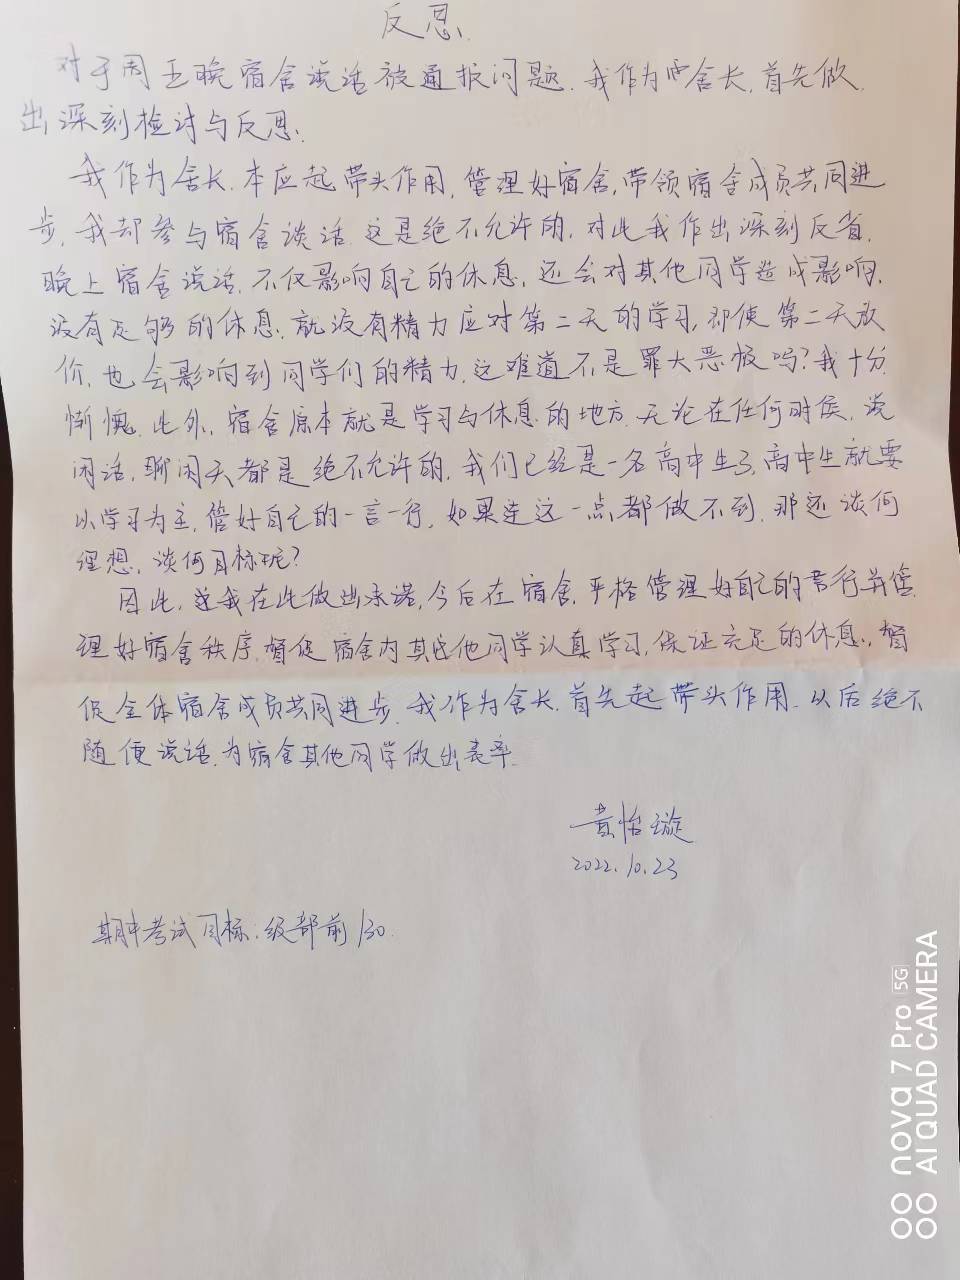 反思.
对于周五晚宿舍说话被通报问题.我作为舍长,首先做
出深刻检讨与反思.
我作为舍长.本应起带头作用,管理好宿舍,带领宿舍成员共同进
步,我却参与宿舍谈话.这是绝不允许的.对此我作出深刻反省.
晚上宿舍说话,不仅影响自己的休息,还会对其他同学造成影响.
没有足够的休息,就没有精力应对第二天的学习,即使第二天放
价,也会影响到同学们的精力,这难道不是罪大恶极吗?我十分
惭愧.此外,宿舍原本就是学习与休息的地方.无论在任何时候,说
闲话,聊闲天都是绝不允许的,我们已经是一名高中生了,高中生就要
以学习为主,管好自己的一言一行,如果连这一点都做不到,那还谈何
理想,谈何目标呢?
因此,我在此做出承诺,今后在宿舍,严格管理好自己的言行并管
理好宿舍秩序,督促宿舍内其他同学认真学习,保证充足的休息,督
促全体宿舍成员共同进步.我作为舍长,首先起带头作用.以后绝不
随便说话,为宿舍其他同学做出表率.
黄怡璇
2022.10.23
期中考试目标:级部前130.
nova 7 Pro 5G
AI QUAD CAMERA